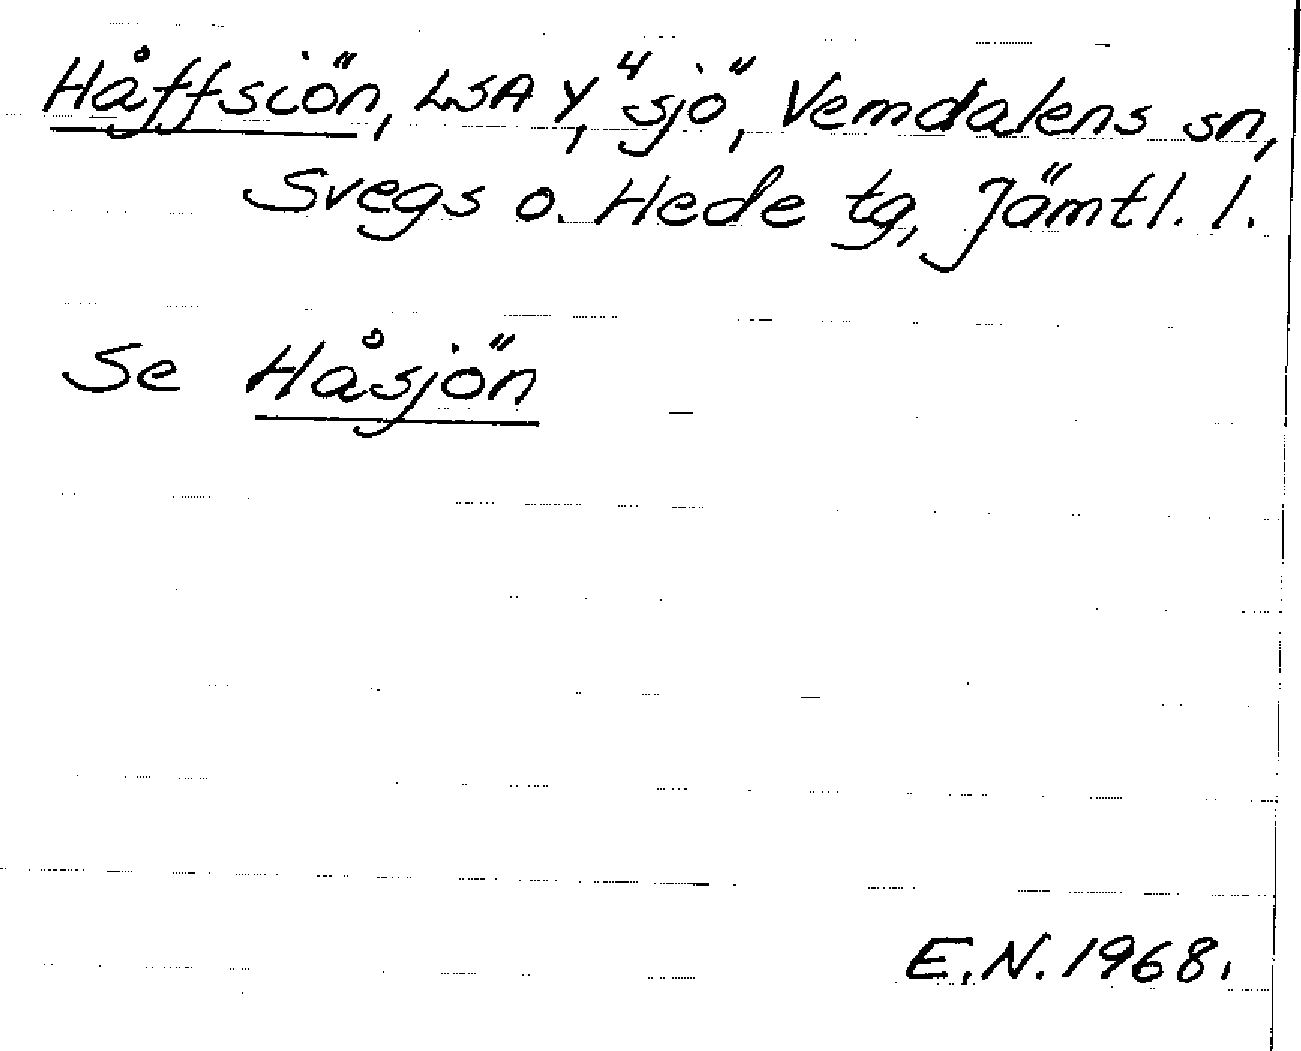 Håffsiön, LSA Y, 4 sjö, Vemdalens sn,
Svegs o. Hede tg, Jämtl. l.
Se Håsjön
E.N. 1968.